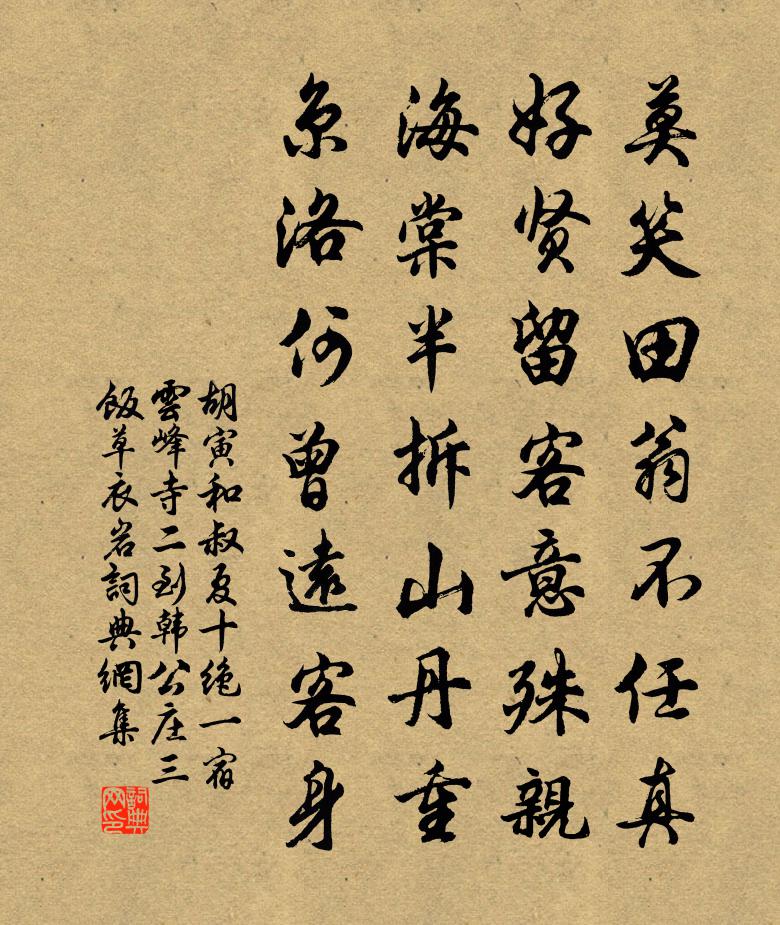 莫笑田翁不任真
好贤留客意殊親
海棠半拆山丹重
京洛何曾遠客身
胡寅和叔夏十绝一宿
雲峰寺二到韩公庄三
飯草衣岩詞典網集
詞典网印